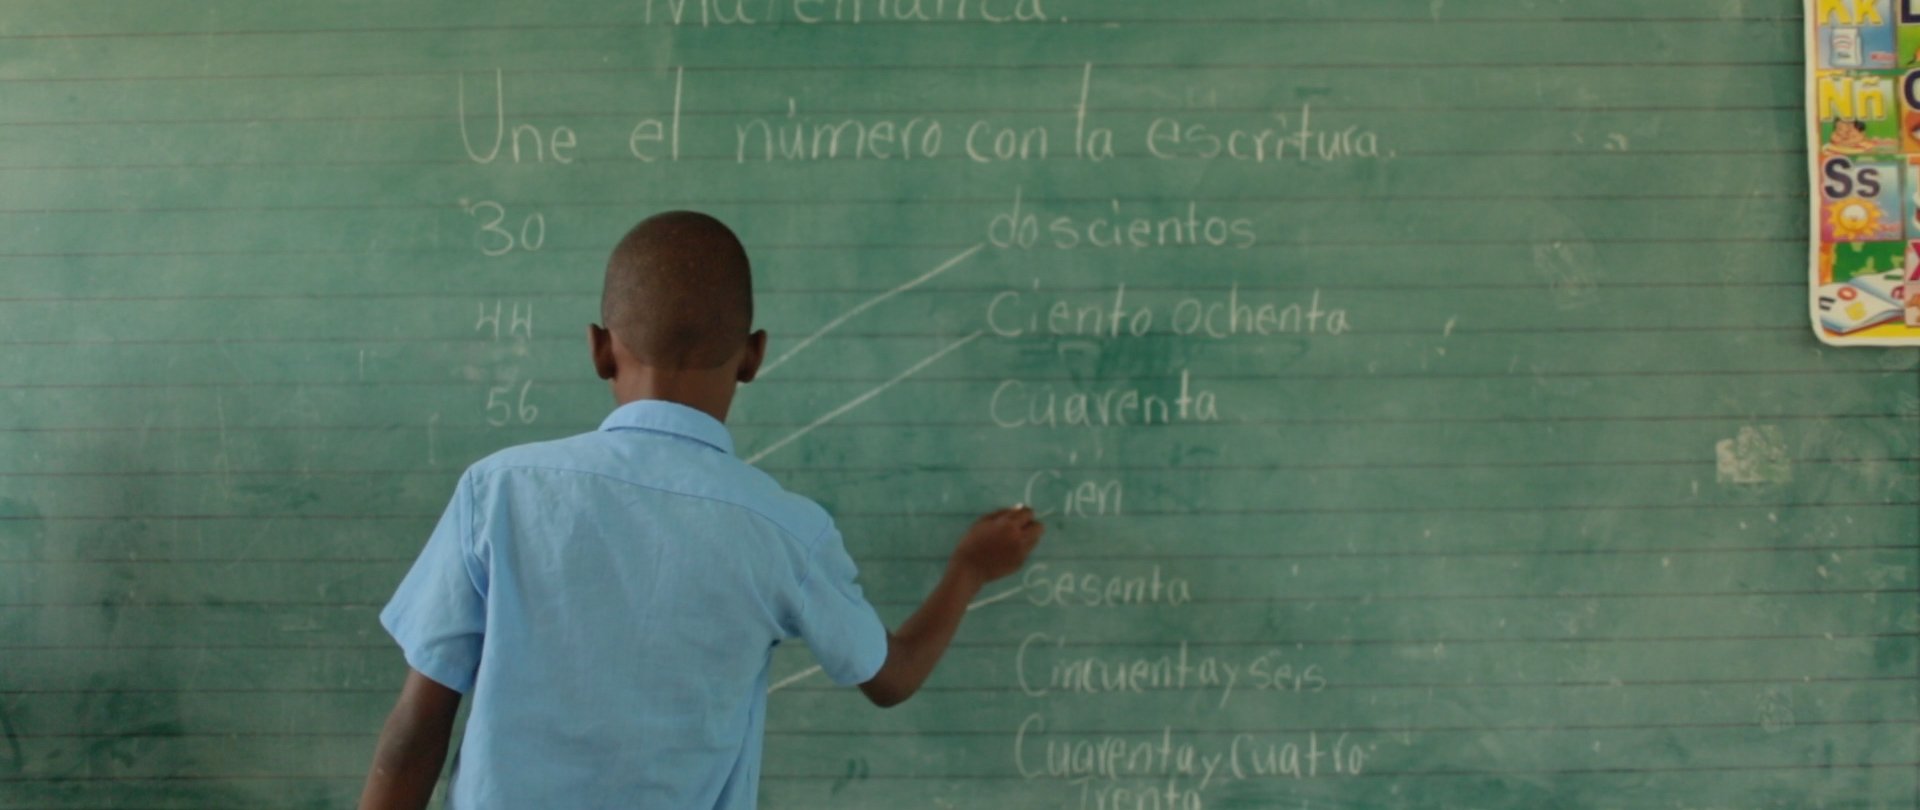 Matemática.
Une el número con la escritura.
30 doscientos
44 Ciento ochenta
56 Cuarenta
Cien
Sesenta
Cincuenta y seis
Cuarenta y Cuatro
Trenta
Kk
Ññ
Ss